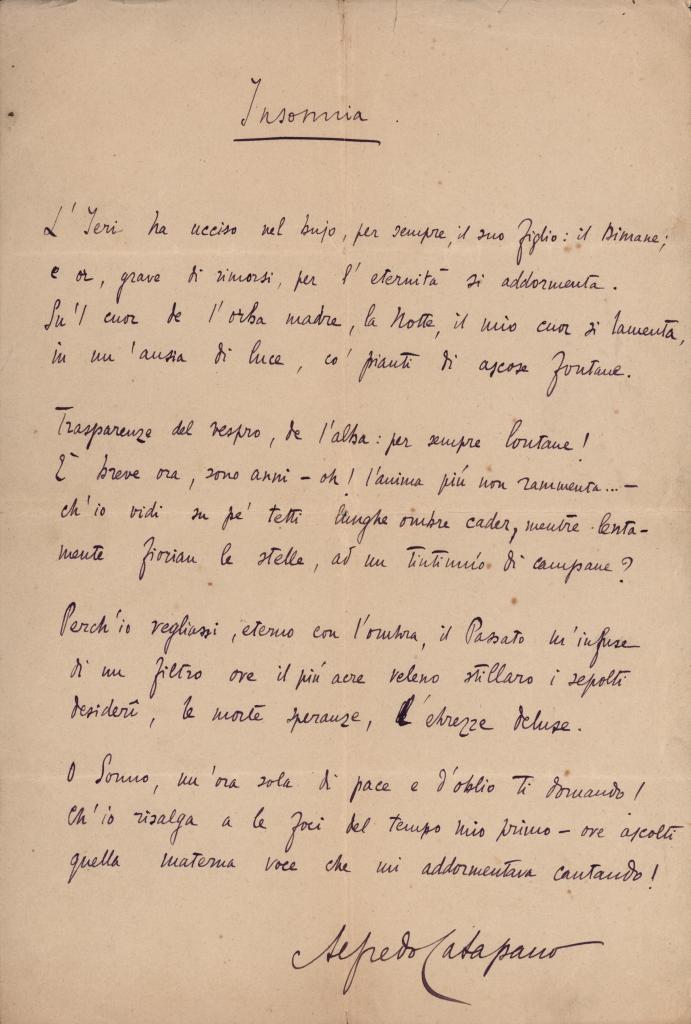 Insonnia.
L'Ieri ha ucciso nel bujo, per sempre, il suo figlio: il Dimane;
e or, grave di rimorsi, per l'eternità si addormenta.
Su 'l cuor de l'orba madre, la Notte, il mio cuor si lamenta,
in un'ansia di luce, co' pianti di ascose fontane.
Trasparenze del vespro, de l'alba: per sempre lontane!
È breve ora, sono anni – oh! l'anima più non rammenta... –
ch'io vidi su pe' tetti lunghe ombre cader, mentre lenta-
mente fiorian le stelle, ad un tintinnìo di campane?
Perch'io vegliassi, eterno con l'ombra, il Passato m'infuse
di un filtro ove il più acre veleno stillaro i sepolti
desiderî, le morte speranze, l'ebrezze deluse.
O Sonno, un'ora sola di pace e d'oblio ti domando!
Ch'io risalga a le foci del tempo mio primo – ove ascolti
quella materna voce che mi addormentava cantando!
Alfredo Catapano